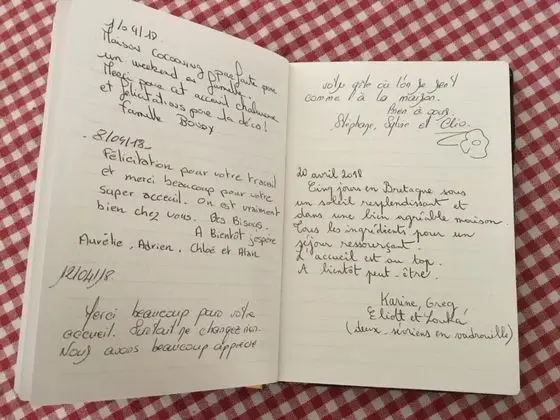 1/04/18
Maison Cocooning, parfaite pour
un weekend en famille.
Merci pour cet accueil chaleureux
et félicitations pour la déco!
Famille
8/04/18
Félicitation pour votre travail
et merci beaucoup pour votre
super acceuil. On est vraiment
bien chez vous. Des Bisous.
A Bientôt j'espère
Aurélie, Adrien, Chloé et Alain
12/04/18.
Merci beaucoup pour votre
accueil. Surtout ne changez rien.
Nous avons beaucoup apprécié
votre gîte où l'on se sent
comme à la maison.
Bien à vous.
Stéphane, Sylvie et Clio.
20 avril 2018
Cinq jours en Bretagne sous
un soleil resplendissant et
dans une bien agréable maison.
Tous les ingrédients pour un
séjour ressourçant.
L'accueil est au top.
A bientôt peut-être.
Karine, Greg,
Eliott et Louka
(deux-sévriens en vadrouille)